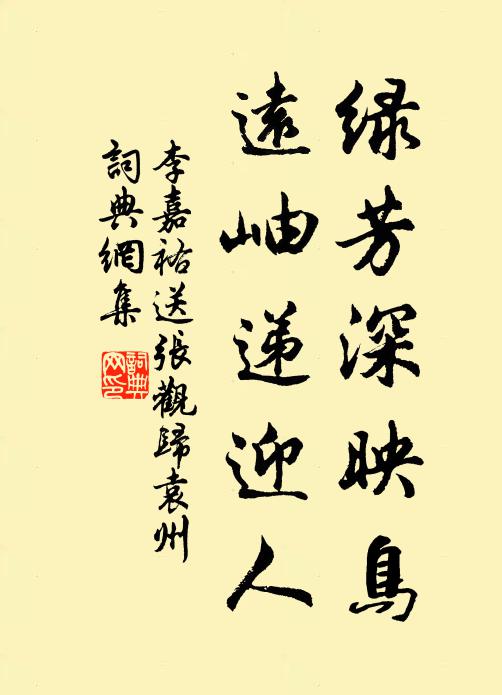 绿芳深映鳥
遠岫递迎人
李嘉祐送張觀歸袁州
詞典網集
詞典網印